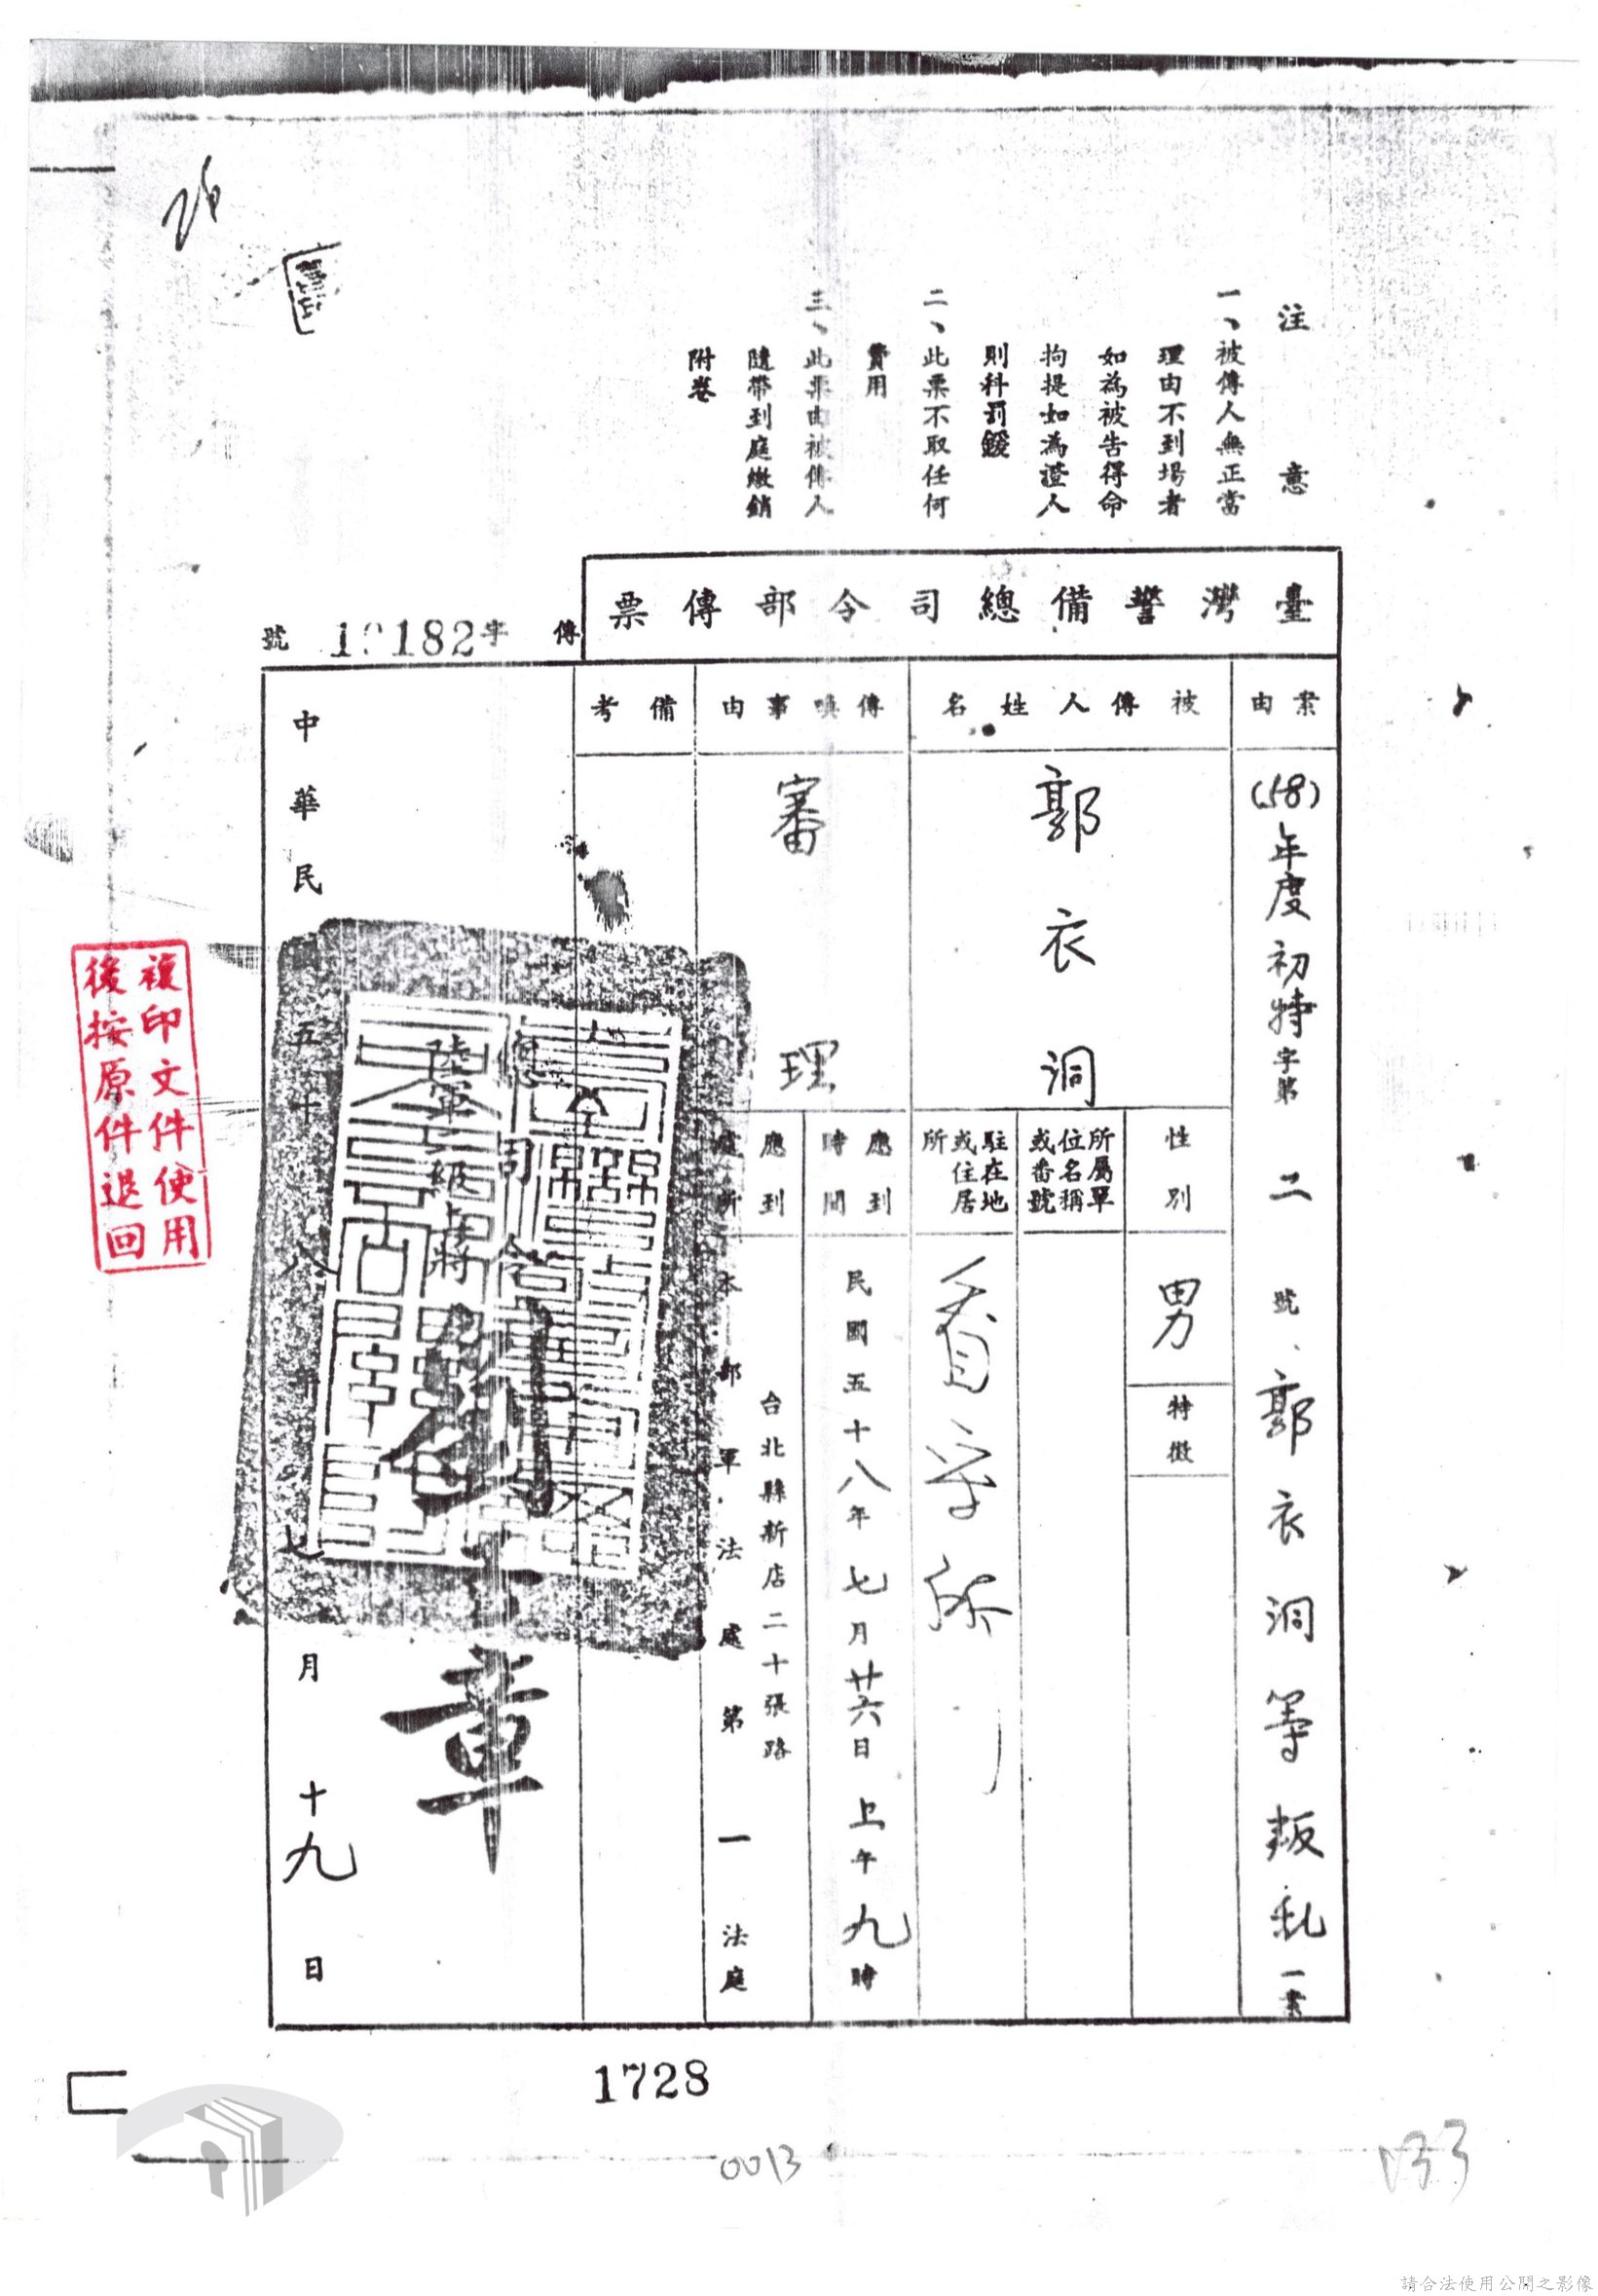 注意
一、被傳人無正當
理由不到場者
如為被告得命
拘提如為證人
則科罰鍰
二、此票不取任何
費用
三、此票由被傳人
隨帶到庭繳銷
附卷
臺灣警備總司令部傳票
傳字 182號
案由
(58)年度初特字第二號、郭衣洞等叛乱一案
被傳人姓名
郭衣洞
性別
男
特徵
所屬單
位名稱
或番號
駐在地
或住居
所
看守所
傳喚事由
審理
應到
時間
民國五十八年七月廿六日上午九時
應到
處所
台北縣新店二十張路
本部軍法處第一法庭
備考
陸軍二級上將
章
中華民 五十八年七月十九日
複印文件使用
後按原件退回
1728
0013
133
請合法使用公開之影像